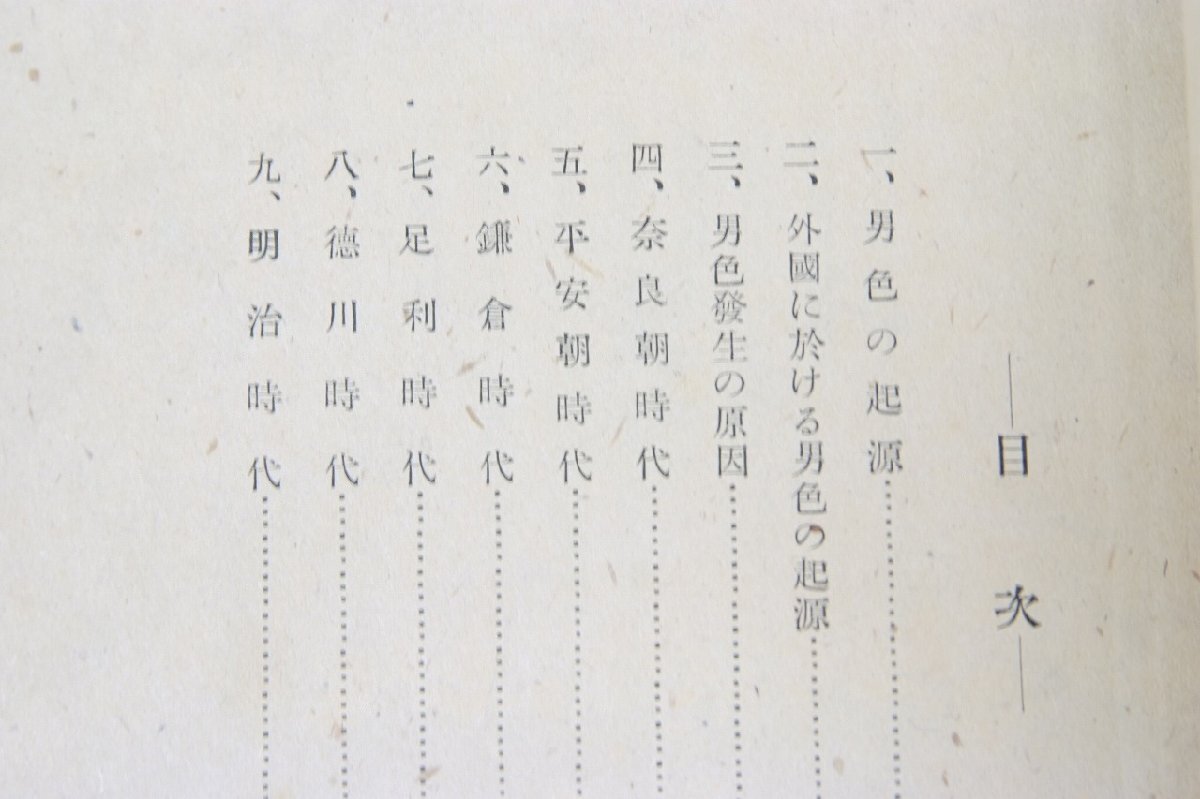 ―目 次―
一、男色の起源
二、外國に於ける男色の起源
三、男色發生の原因
四、奈良朝時代
五、平安朝時代
六、鎌倉時代
七、足利時代
八、德川時代
九、明治時代